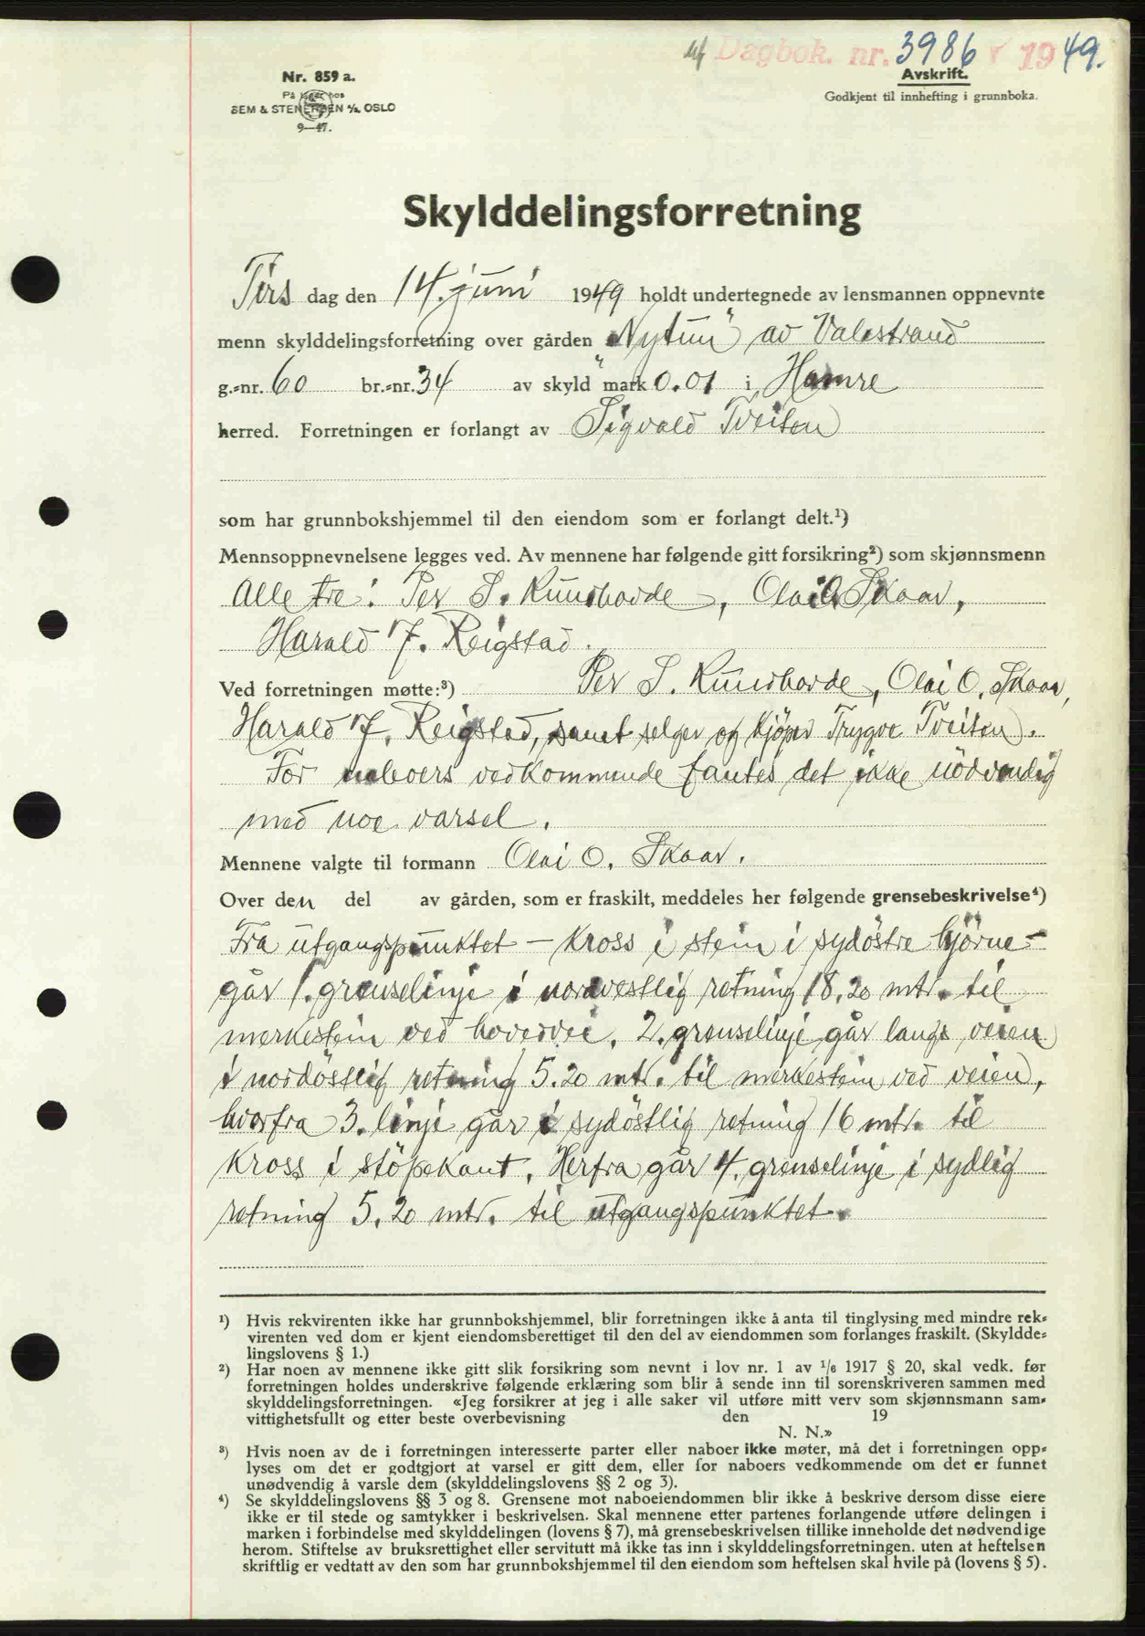 Dagbok. nr. 3986 1949.
Avskrift.
Godkjent til innhefting i grunnboka.
Nr. 859 a.
På lager hos
SEM & STENERSEN A/S OSLO
9—47.
Skylddelingsforretning
Tirsdag den 14. juni 1949 holdt undertegnede av lensmannen oppnevnte
menn skylddelingsforretning over gården "Nytun" av Valestrand
g.-nr. 60 br.-nr. 34 av skyld mark 0.01 i Hamre
herred. Forretningen er forlangt av Sigvald Tveiten
som har grunnbokshjemmel til den eiendom som er forlangt delt.¹)
Mennsoppnevnelsene legges ved. Av mennene har følgende gitt forsikring²) som skjønnsmenn
Alle tre: Per S. Rundhovde, Olai O. Skaar,
Harald J. Reigstad.
Ved forretningen møtte:³) Per S. Rundhovde, Olai O. Skaar,
Harald J. Reigstad, samt selger og kjöper Trygve Tveiten.
For naboers vedkommende fantes det ikke nödvendig
med noe varsel.
Mennene valgte til formann Olai O. Skaar.
Over den del av gården, som er fraskilt, meddeles her følgende grensebeskrivelse⁴)
Fra utgangspunktet – kross i stein i sydöstre hjörne –
går 1. grenselinje i nordvestlig retning 18,20 mtr. til
merkestein ved hovedvei. 2. grenselinje går langs veien
i nordöstlig retning 5.20 mtr. til merkestein ved veien,
hvorfra 3. linje går i sydöstlig retning 16 mtr. til
kross i stöpekant. Herfra går 4. grenselinje i sydlig
retning 5,20 mtr. til utgangspunktet.
¹) Hvis rekvirenten ikke har grunnbokshjemmel, blir forretningen ikke å anta til tinglysing med mindre rek-
virenten ved dom er kjent eiendomsberettiget til den del av eiendommen som forlanges fraskilt. (Skyldde-
lingslovens § 1.)
²) Har noen av mennene ikke gitt slik forsikring som nevnt i lov nr. 1 av ¹/₆ 1917 § 20, skal vedk. før
forretningen holdes underskrive følgende erklæring som blir å sende inn til sorenskriveren sammen med
skylddelingsforretningen. «Jeg forsikrer at jeg i alle saker vil utføre mitt verv som skjønnsmann sam-
vittighetsfullt og etter beste overbevisning den 19
N. N.»
³) Hvis noen av de i forretningen interesserte parter eller naboer ikke møter, må det i forretningen opp-
lyses om det er godtgjort at varsel er gitt dem, eller for naboers vedkommende om det er funnet
unødvendig å varsle dem (skylddelingslovens §§ 2 og 3).
⁴) Se skylddelingslovens §§ 3 og 8. Grensene mot naboeiendommen blir ikke å beskrive dersom disse eiere
ikke er til stede og samtykker i beskrivelsen. Skal mennene etter partenes forlangende utføre delingen i
marken i forbindelse med skylddelingen (lovens § 7), må grensebeskrivelsen tillike inneholde det nødvendige
herom. Stiftelse av bruksrettighet eller servitutt må ikke tas inn i skylddelingsforretningen, uten at heftelsen
skriftlig er vedtatt av den som har grunnbokshjemmel til den eiendom som heftelsen skal hvile på (lovens § 5).